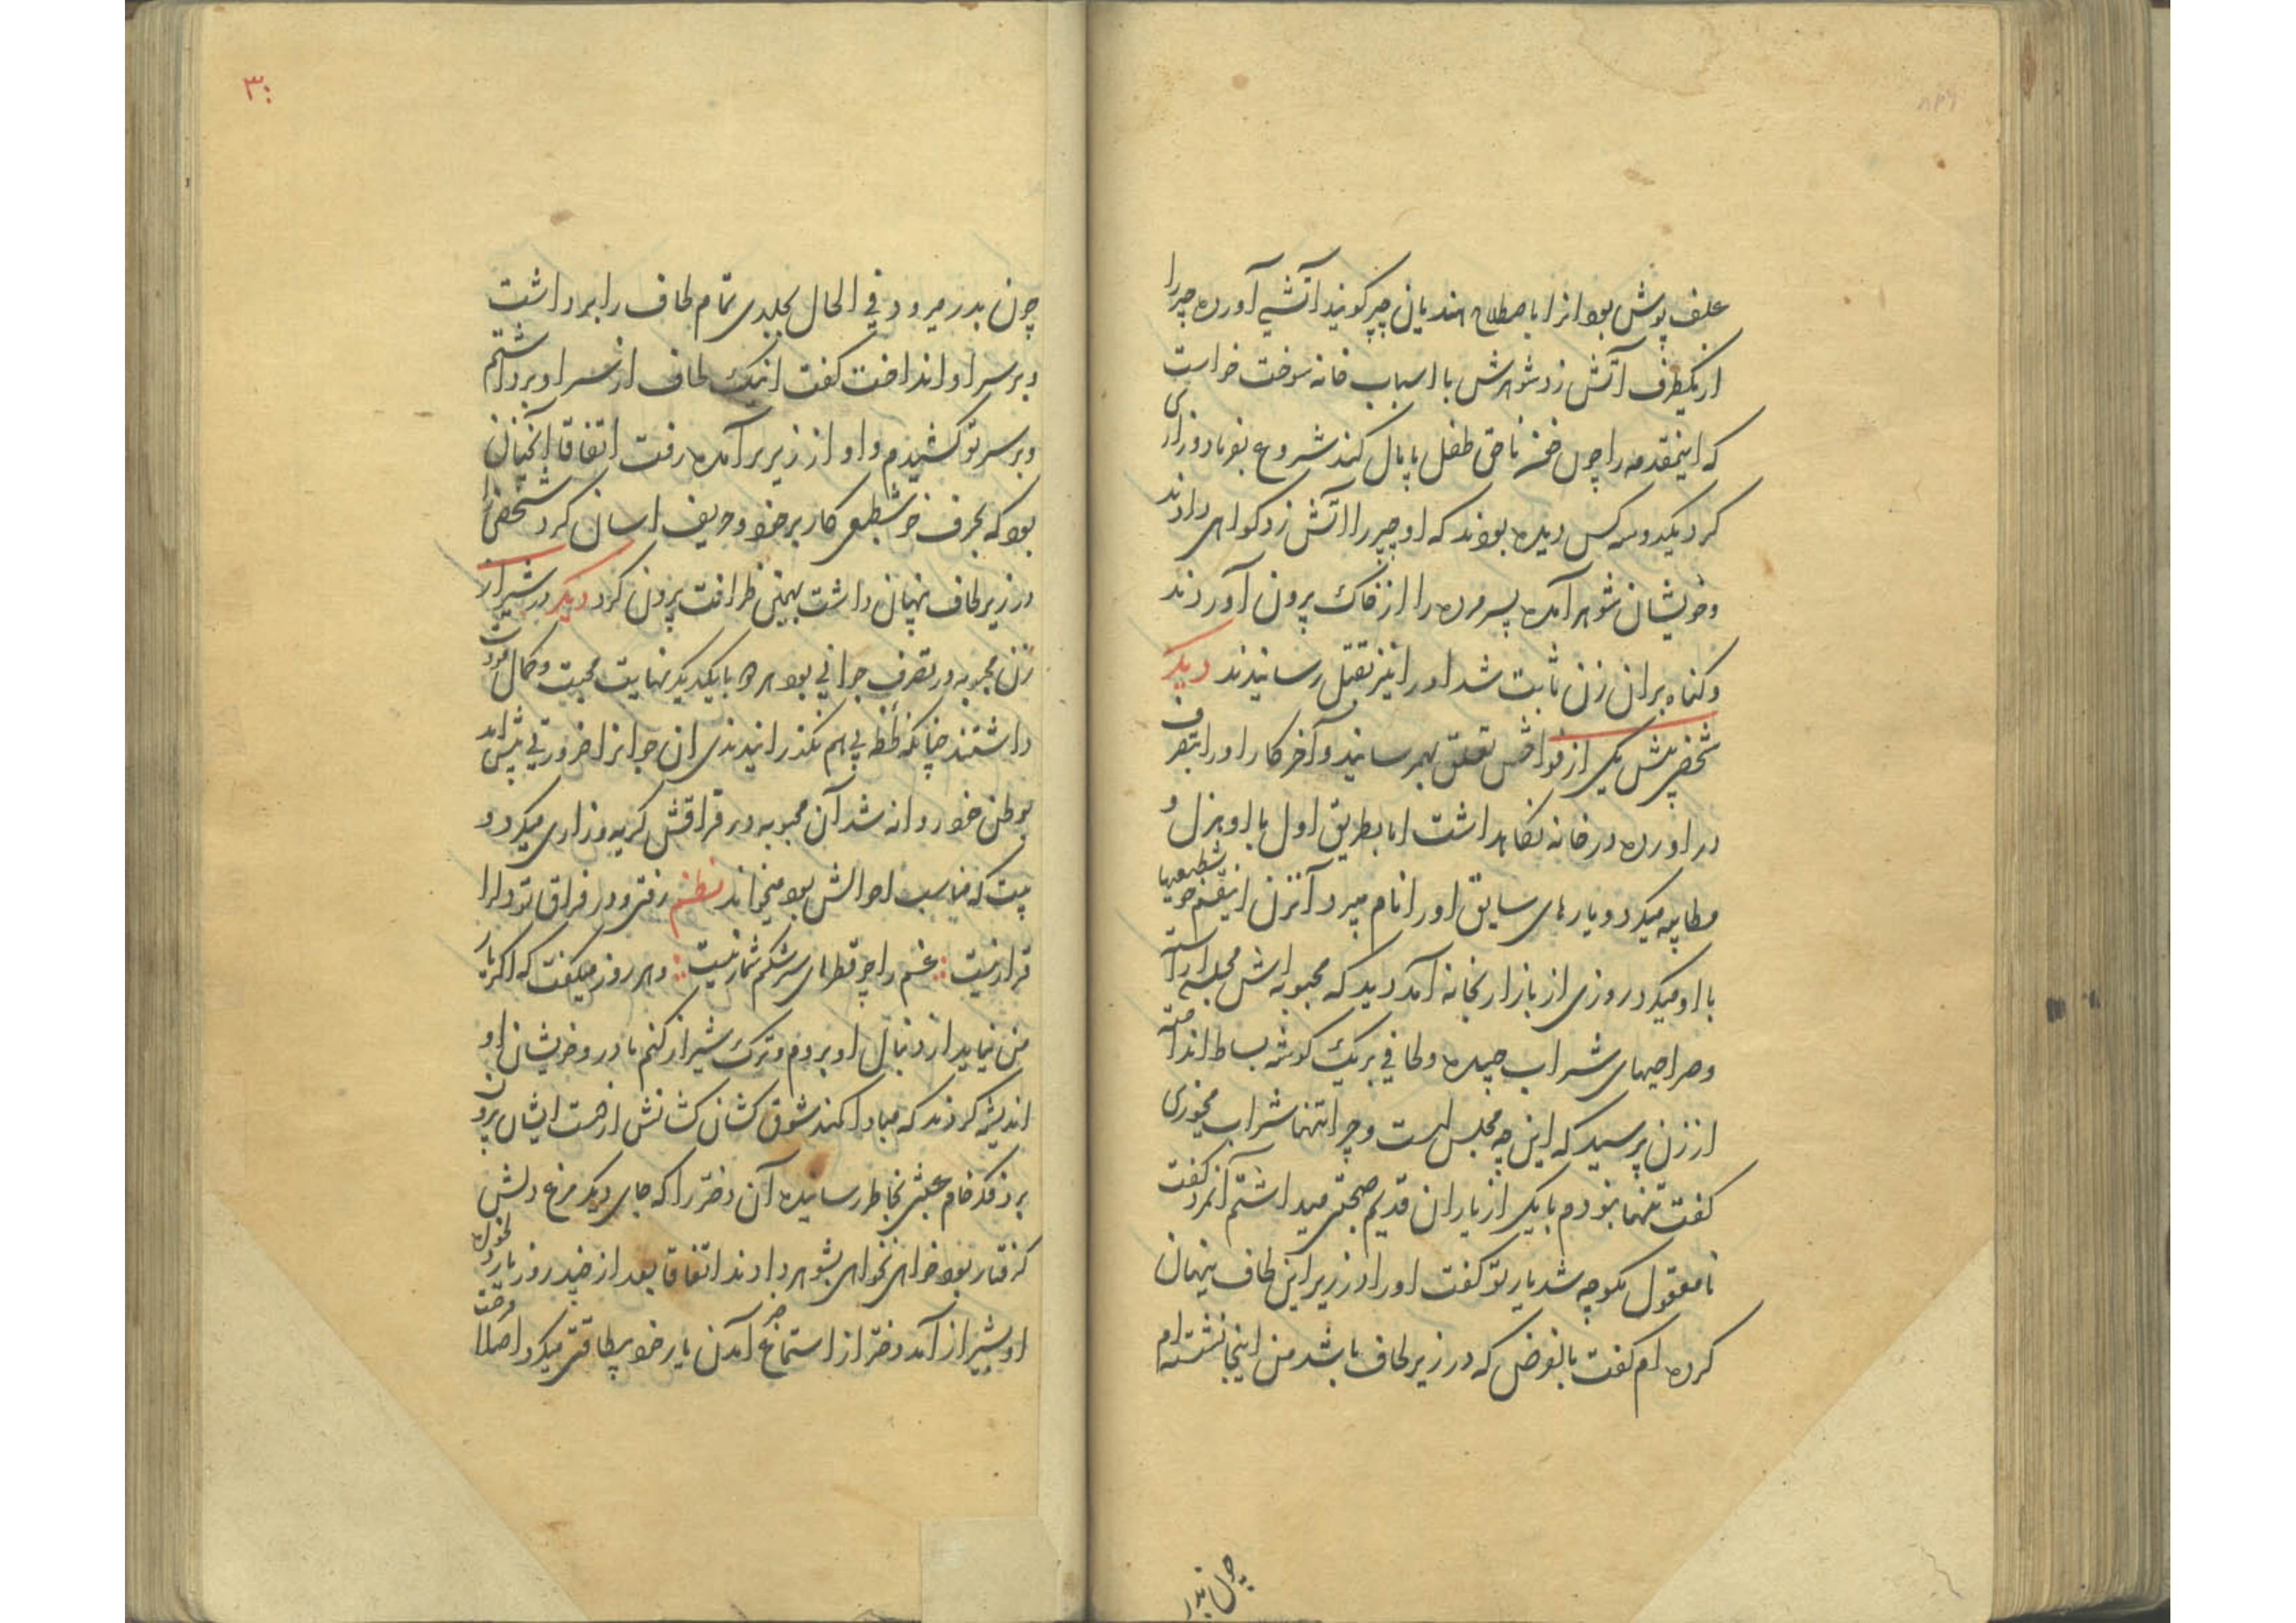 علف پوش بود انرا باصطلاح هندیان چپر کویند آتشی آورده چپر را
از یکطرف آتش زد شوهرش با اسباب خانه سوخت خواست
که اینمقدمه را چون خون ناحق طفل پایمال کند شروع بفریاد و زاری
کرد یکدو سه کس دیده بودند که او چپر را اتش زد کواهی دادند
و خویشان شوهر آمده پسر مرده را از خاک برون آوردند
و کناه بران زن ثابت شد اورا نیز بقتل رسانیدند دیکر
شخصی پیش یکی از فواحش تعلق بهم رسانید و آخر کار اورا بتصرف
در اورده در خانه نکاهداشت اما بطریق اول با او هزل و
مطایبه میکرد و یارهای سابق اورا نام میبرد آنزن اینقسم خوشطبعیها
با او میکرد روزی از بازار بخانه آمد دید که محبوبه اش مجلس آراسته
و صراحیهای شراب چیده و لحافی بر یک کوشه بساط انداخته
از زن پرسید که این چه مجلس است و چرا تنها شراب میخوری
کفت تنها نبودم با یکی از یاران قدیم صحبتی میداشتم آنمرد کفت
نامعقول مکو چه شد یار تو کفت اورا در زیر این لحاف پنهان
کرده ام کفت بالفرض که در زیر لحاف باشد من اینجا نشسته ام
چون بدر
۳۰
چون بدر میرود فی الحال بجلدی تمام لحاف را برداشت
و بر سر او انداخت کفت اینک لحاف از سر او برداشتم
و بر سر تو کشیدم و او از زیر برآمده رفت اتفاقا آنچنان
بود که بحرف خوشطبعی کار بر خود و حریف اسان کرد شخصی را
در زیر لحاف پنهان داشت بهمین ظرافت برون کرد دیکر در شیراز
زن محبوبه در تصرف جوانی بود هر دو با یکدیکر نهایت محبت و کمال مودت
داشتند چنانکه لحظه بی هم نکذرانیدندی ان جوانرا ضرورتی پیش آمد
بوطن خود روانه شد آن محبوبه در فراقش کریه و زاری میکرد و
بیت که مناسب احوالش بود میخواند نظم رفتی و در فراق تو دلرا
قرار نیست غم را چو قطرهای سرشکم شمار نیست و هر روز میکفت که اکر یار
من نیاید از دنبال او بروم و ترک شیراز کنم مادر و خویشان او
اندیشه کردند که مبادا کمند شوق کشان کشانش از دست ایشان برون
برد فکر خام عبثی بخاطر رسانیده آن دختر را که جای دیکر مرغ دلش
کرفتار بود خواهی نخواهی بشوهر دادند اتفاقا بعد از چند روز یار
او بشیراز آمد دختر از استماع خبر آمدن یار خود بیطاقتی میکرد اصلا فرصت